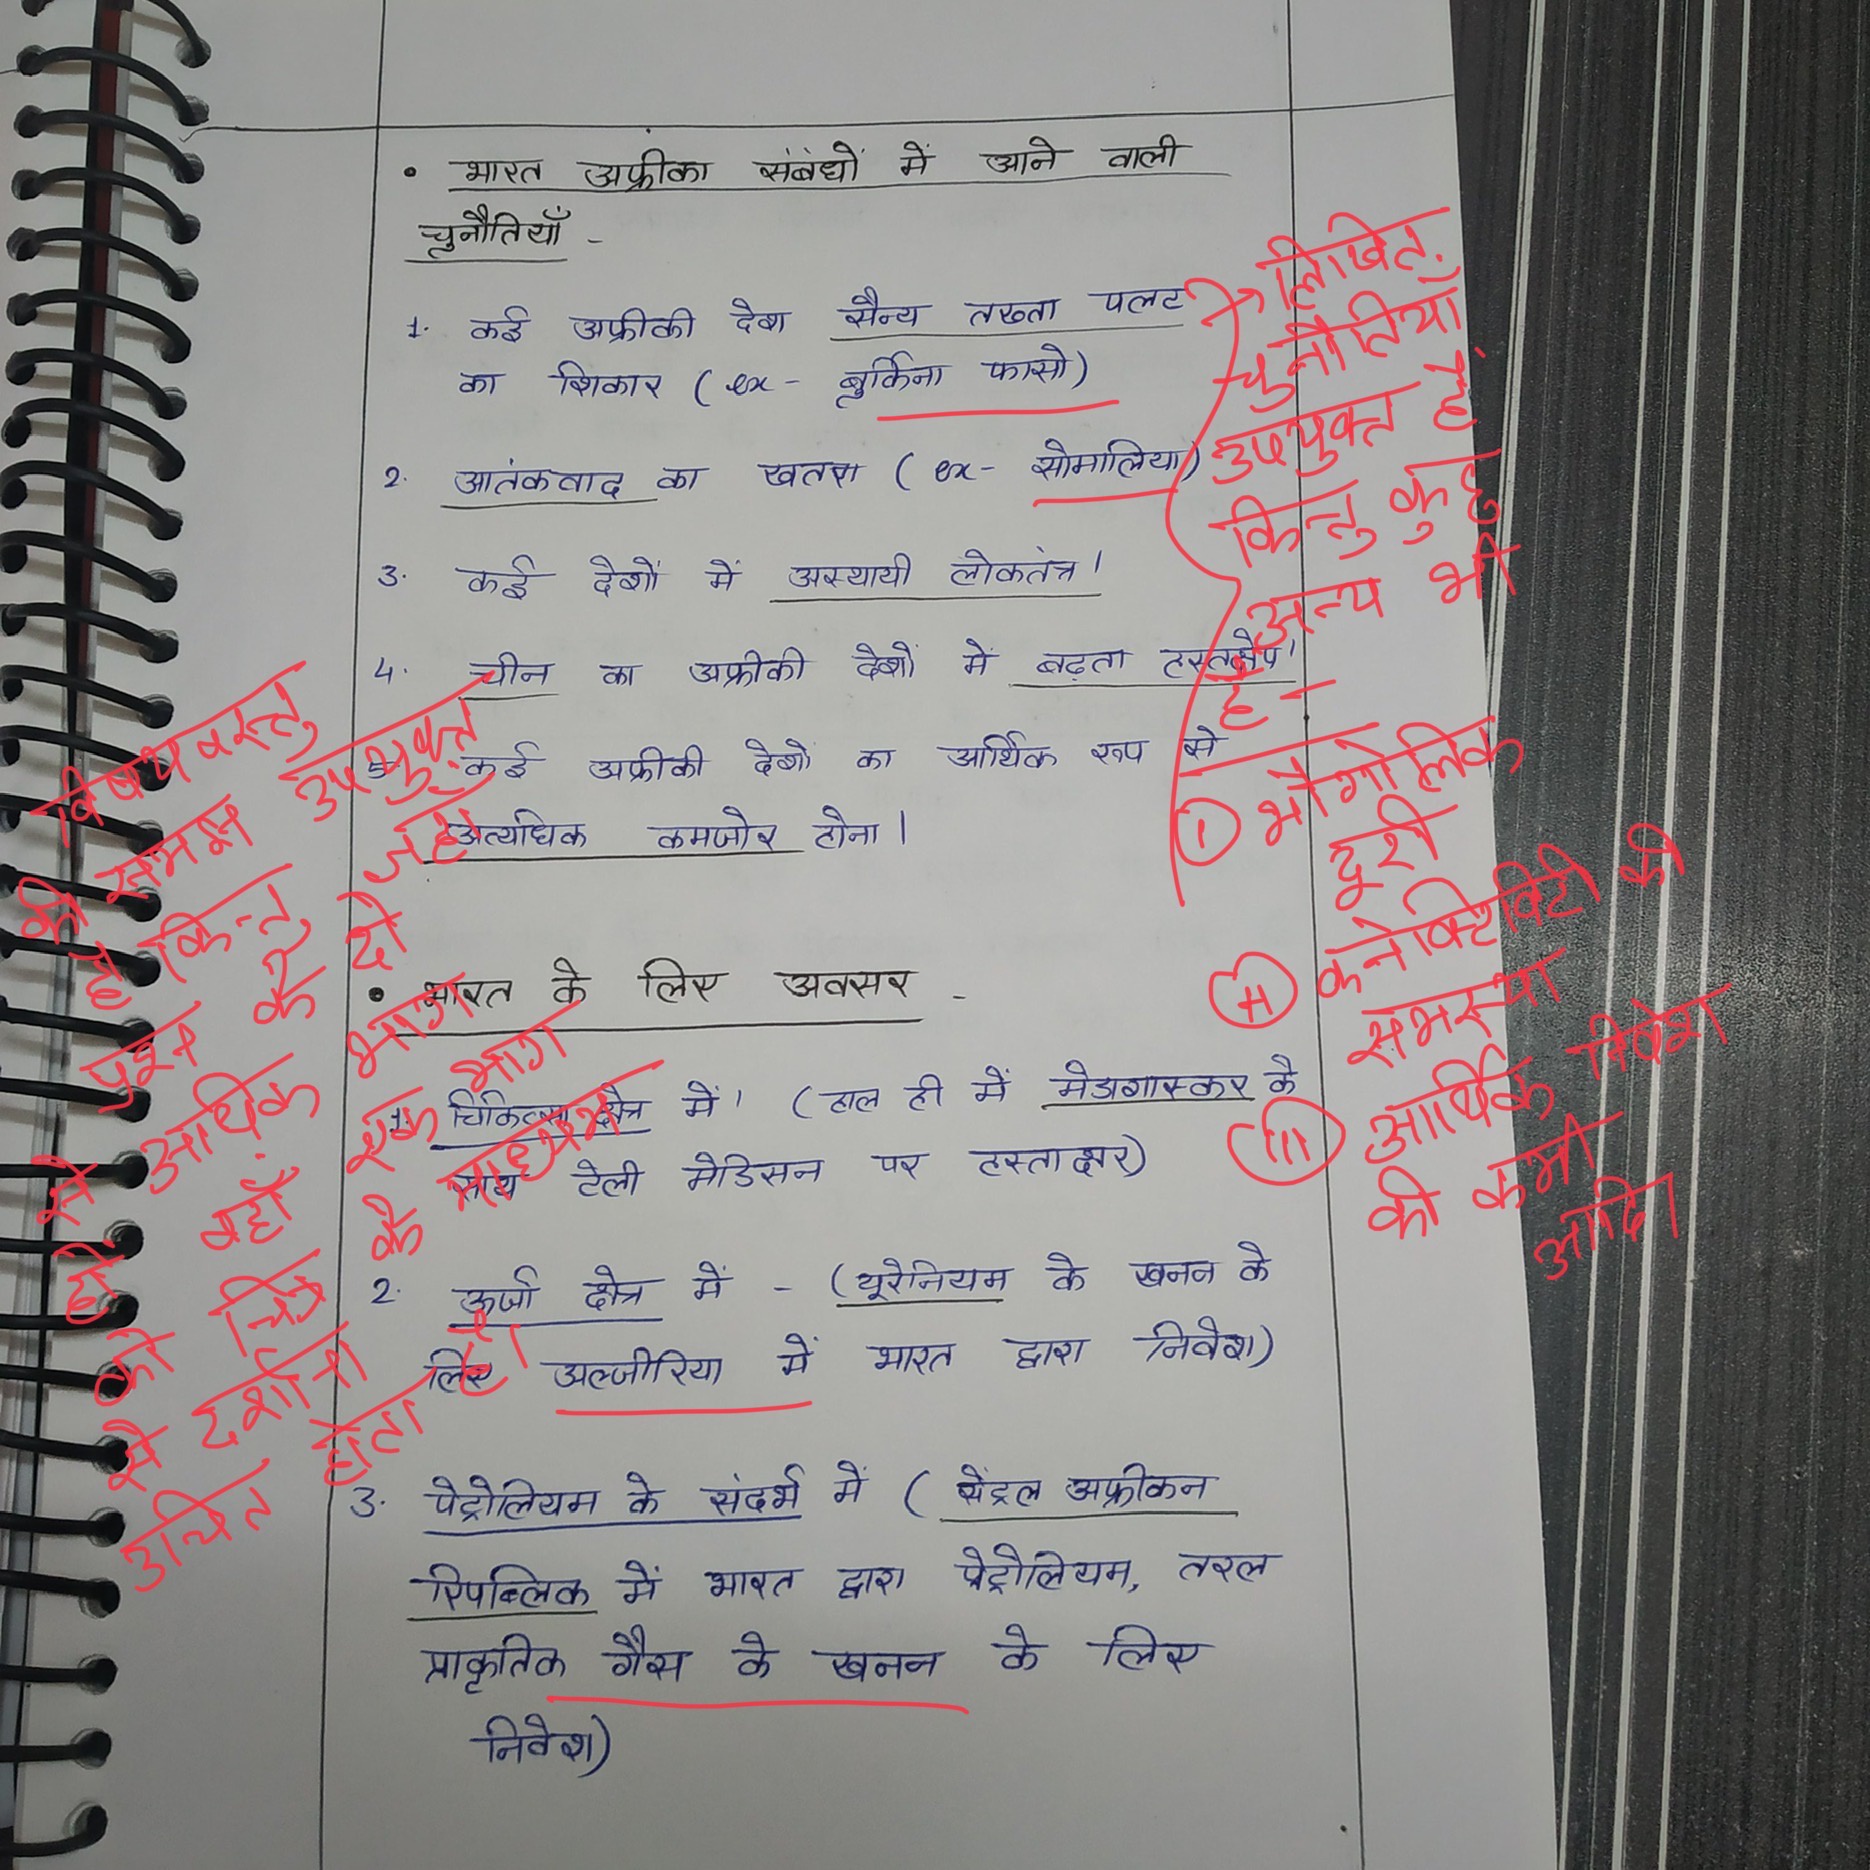 • भारत अफ्रीका संबंधों में आने वाली
चुनौतियाँ -
1. कई अफ्रीकी देश सैन्य तख्ता पलट
का शिकार (ex- बुर्किना फासो)
2. आतंकवाद का खतरा (ex- सोमालिया)
3. कई देशों में अस्थायी लोकतंत्र।
4. चीन का अफ्रीकी देशों में बढ़ता हस्तक्षेप।
5. कई अफ्रीकी देशों का आर्थिक रूप से
अत्यधिक कमजोर होना।
• भारत के लिए अवसर -
1. चिकित्सा क्षेत्र में। (हाल ही में मेडागास्कर के
साथ टेली मेडिसन पर हस्ताक्षर)
2. ऊर्जा क्षेत्र में - (यूरेनियम के खनन के
लिए अल्जीरिया में भारत द्वारा निवेश)
3. पेट्रोलियम के संदर्भ में (सेंट्रल अफ्रीकन
रिपब्लिक में भारत द्वारा पेट्रोलियम, तरल
प्राकृतिक गैस के खनन के लिए
निवेश)
→ लिखित
चुनौतियाँ
उपयुक्त हैं
किन्तु कुछ
अन्य भी
हैं -
(I) भौगोलिक
दूरी
(II) कनेक्टिविटी की
समस्या
(III) आर्थिक निवेश
की कमी
आदि।
विषयवस्तु
की समझ उपयुक्त
है किन्तु जहाँ
प्रश्न के दो
से अधिक भाग
हों वहाँ एक भाग
को चित्र के माध्यम
से दर्शाना
उचित होता है।